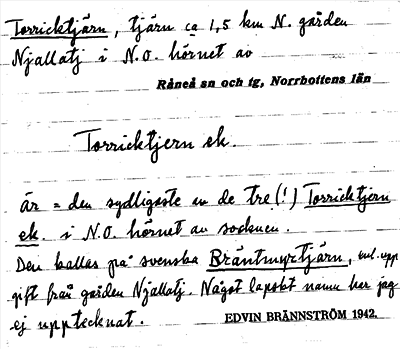 Torricktjärn, tjärn ca 1,5 km N. gården
Njallatj i N.O. hörnet av
Råneå sn och tg, Norrbottens län
Torricktjern ek.
är = den sydligaste av de tre (!) Torricktjern
ek. i N.O. hörnet av socknen.
Den kallas på svenska Bräntmyrtjärn, enl. upp
gift från gården Njallatj. Något lapskt namn har jag
ej upptecknat.
EDVIN BRÄNNSTRÖM 1942.